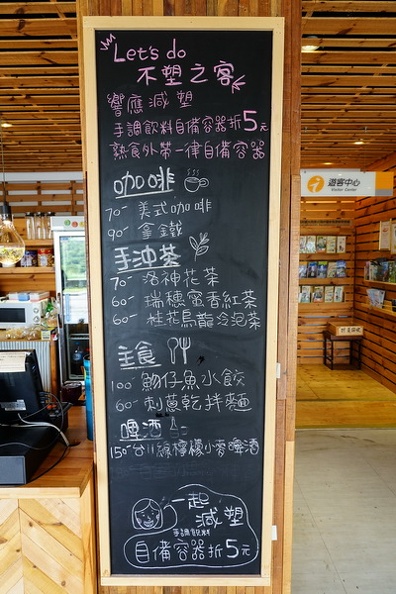 Let's do
不塑之客
響應減塑
手調飲料自備容器折5元
熟食外帶一律自備容器
咖啡
70- 美式咖啡
90- 拿鐵
手沖茶
70- 洛神花茶
60- 瑞穗蜜香紅茶
60- 桂花烏龍冷泡茶
主食
100- 魩仔魚水餃
60- 刺蔥乾拌麵
啤酒
150- 台川線檸檬小麥啤酒
一起
減塑
手調飲料
自備容器折5元
i 遊客中心
Visitor Center